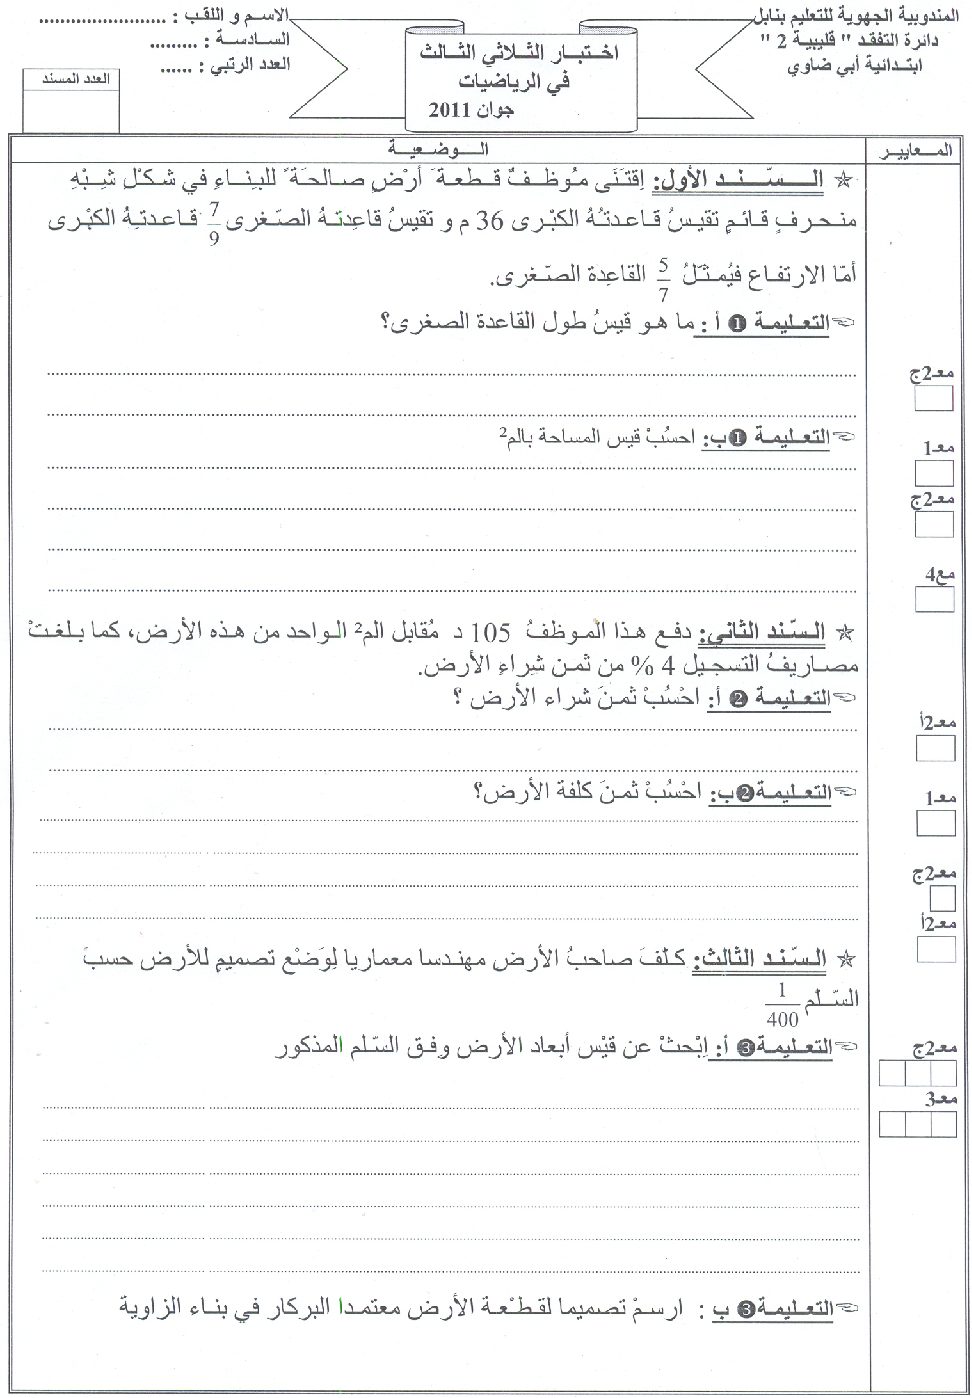 المندوبية الجهوية للتعليم بنابل
دائرة التفقد " قليبية 2 "
ابتدائية أبي ضاوي
اختبار الثلاثي الثالث
في الرياضيات
جوان 2011
الاسم و اللقب : ........................
السادسة : .........
العدد الرتبي : ......
العدد المسند
المعايير
الوضعية
☆ السّند الأول: اِقتنَى مُوظفٌ قطعةَ أرْضٍ صالحَةً للبِناءِ في شكْلِ شِبْهِ
منحرفٍ قائمٍ تقيسُ قاعدتُهُ الكبْرى 36 م و تقيسُ قاعِدتهُ الصّغرى 7/9 قاعدتِهُ الكبْرى
أمّا الارتفاع فيُمثلُ 5/7 القاعِدة الصّغرى.
التعليمة ❶ أ : ما هو قيسُ طول القاعدة الصغرى؟
معـ2ج
التعليمة ❶ب: احسُبْ قيس المساحة بالم²
معـ1
معـ2ج
مع4
☆ السّند الثاني: دفع هذا الموظفُ 105 د مُقابل الم² الواحد من هذه الأرض، كما بلغتْ
مصاريفُ التسجيل 4 % من ثمن شِراءِ الأرض.
التعليمة ❷ أ: احْسُبْ ثمنَ شراء الأرض ؟
معـ2أ
التعليمة❷ب: احْسُبْ ثمنَ كلفة الأرض؟
معـ1
معـ2ج
معـ2أ
☆ السّند الثالث: كلفَ صاحبُ الأرضِ مهندسا معماريا لِوَضْع تصميمٍ للأرض حسبَ
السّلم 1/400
التعليمة❸ أ: اِبْحثْ عن قيْس أبعاد الأرض وفق السّلم المذكور
معـ2ج
معـ3
التعليمة❸ ب : ارسمْ تصميما لقطْعة الأرض معتمدا البركار في بناء الزاوية